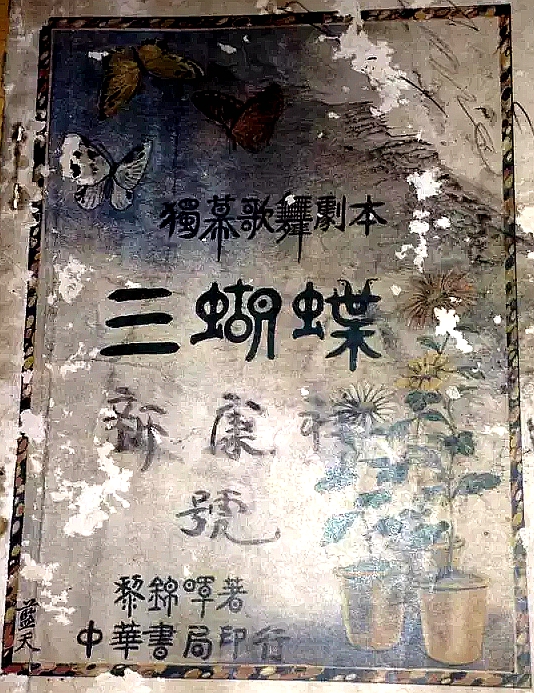 獨幕歌舞劇本
三蝴蝶
新康
號
黎錦暉著
中華書局印行
藍天